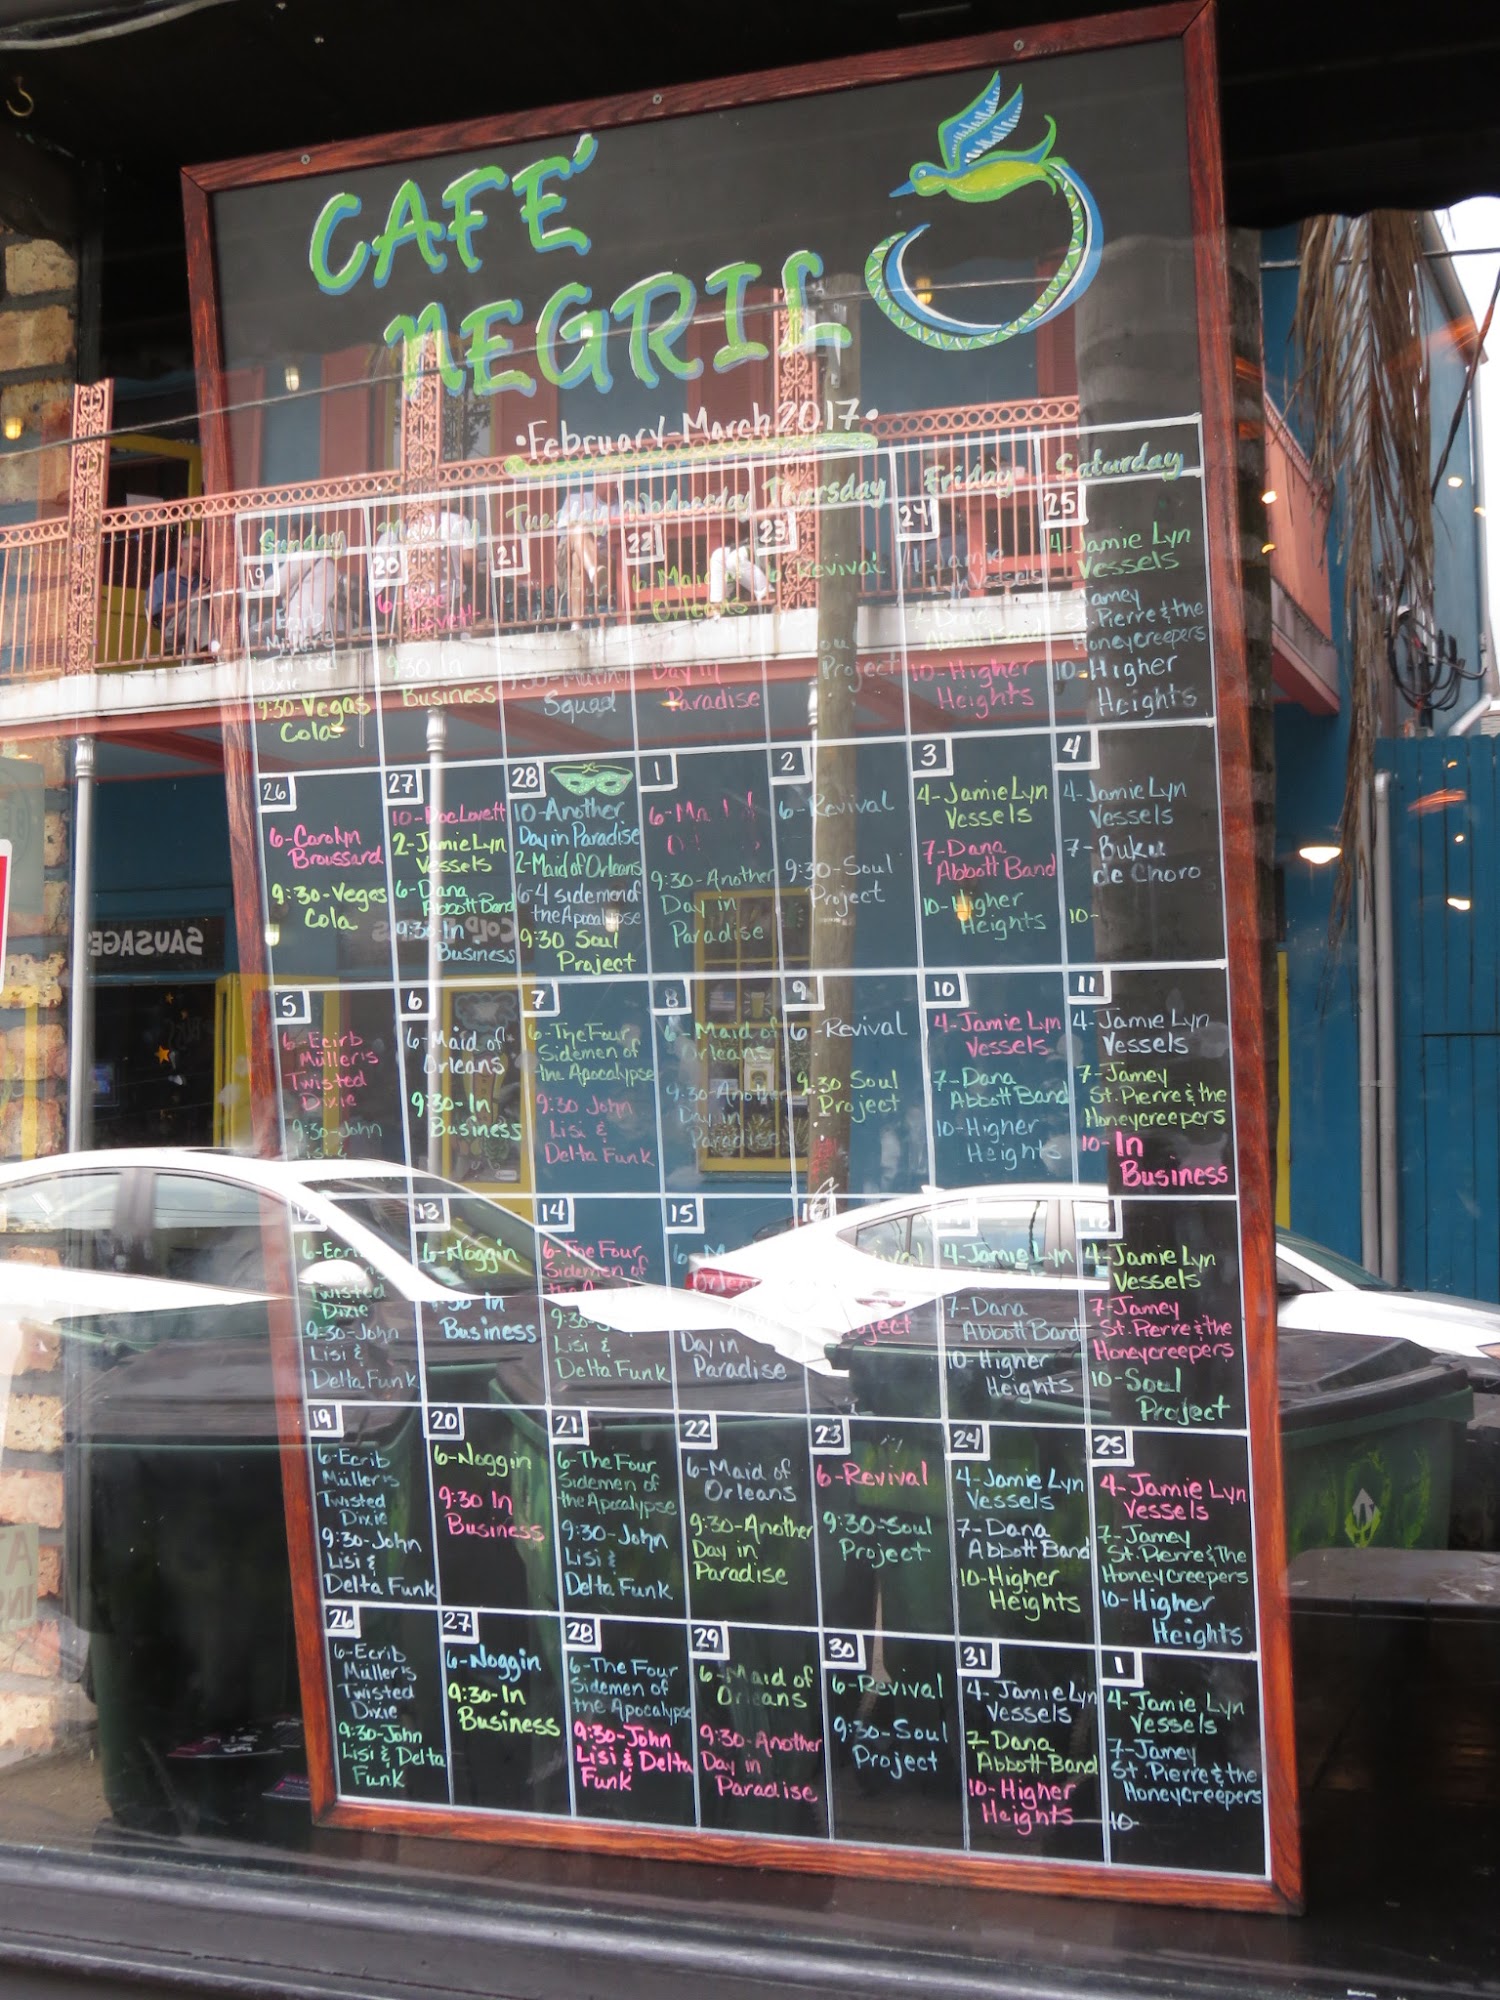 CAFÉ
NEGRIL
•February-March 2017•
Sunday
Monday
Tuesday
Wednesday
Thursday
Friday
Saturday
19
Ecrib
Müller's
Twisted
Dixie
9:30-Vegas
Cola
20
Lovett
9:30 In
Business
21
Squad
22
6-Maid of
Orleans
Day in
Paradise
23
6-Revival
Soul
Project
24
4-Jamie
Lyn Vessels
Dana
Abbott Band
10-Higher
Heights
25
4-Jamie Lyn
Vessels
7-Jamey
St. Pierre & the
Honeycreepers
10-Higher
Heights
26
6-Carolyn
Broussard
9:30-Vegas
Cola
27
10-Doc Lovett
2-Jamie Lyn
Vessels
6-Dana
Abbott Band
9:30-In
Business
28
10-Another
Day in Paradise
2-Maid of Orleans
6-4 sidemen of
the Apocalypse
9:30 Soul
Project
1
6-
9:30-Another
Day in
Paradise
2
6-Revival
9:30-Soul
Project
3
4-Jamie Lyn
Vessels
7-Dana
Abbott Band
10-Higher
Heights
4
4-Jamie Lyn
Vessels
7-Buku
de Choro
10-
5
6-Ecirb
Müller's
Twisted
Dixie
9:30-John
Lisi &
6
6-Maid of
Orleans
9:30-In
Business
7
6-The Four
Sidemen of
the Apocalypse
9:30 John
Lisi &
Delta Funk
8
6-Maid of
Orleans
9:30-Another
Day in
Paradise
9
6-Revival
9:30 Soul
Project
10
4-Jamie Lyn
Vessels
7-Dana
Abbott Band
10-Higher
Heights
11
4-Jamie Lyn
Vessels
7-Jamey
St. Pierre & the
Honeycreepers
10-In
Business
12
6-Ecri
Twisted
Dixie
9:30-John
Lisi &
Delta Funk
13
6-Noggin
In
Business
14
6-The Four
Sidemen of
Lisi &
Delta Funk
15
Orleans
Day in
Paradise
16
4-Jamie Lyn
7-Dana
Abbott Band
10-Higher
Heights
4-Jamie Lyn
Vessels
7-Jamey
St. Pierre & the
Honeycreepers
10-Soul
Project
19
6-Ecrib
Müller's
Twisted
Dixie
9:30-John
Lisi &
Delta Funk
20
6-Noggin
9:30 In
Business
21
6-The Four
Sidemen of
the Apocalypse
9:30-John
Lisi &
Delta Funk
22
6-Maid of
Orleans
9:30-Another
Day in
Paradise
23
6-Revival
9:30-Soul
Project
24
4-Jamie Lyn
Vessels
7-Dana
Abbott Band
10-Higher
Heights
25
4-Jamie Lyn
Vessels
7-Jamey
St. Pierre & The
Honeycreepers
10-Higher
Heights
26
6-Ecrib
Müller's
Twisted
Dixie
9:30-John
Lisi & Delta
Funk
27
6-Noggin
9:30-In
Business
28
6-The Four
Sidemen of
the Apocalypse
9:30-John
Lisi & Delta
Funk
29
6-Maid of
Orleans
9:30-Another
Day in
Paradise
30
6-Revival
9:30-Soul
Project
31
4-Jamie Lyn
Vessels
7-Dana
Abbott Band
10-Higher
Heights
1
4-Jamie Lyn
Vessels
7-Jamey
St. Pierre & the
Honeycreepers
10-
SAUSAGE